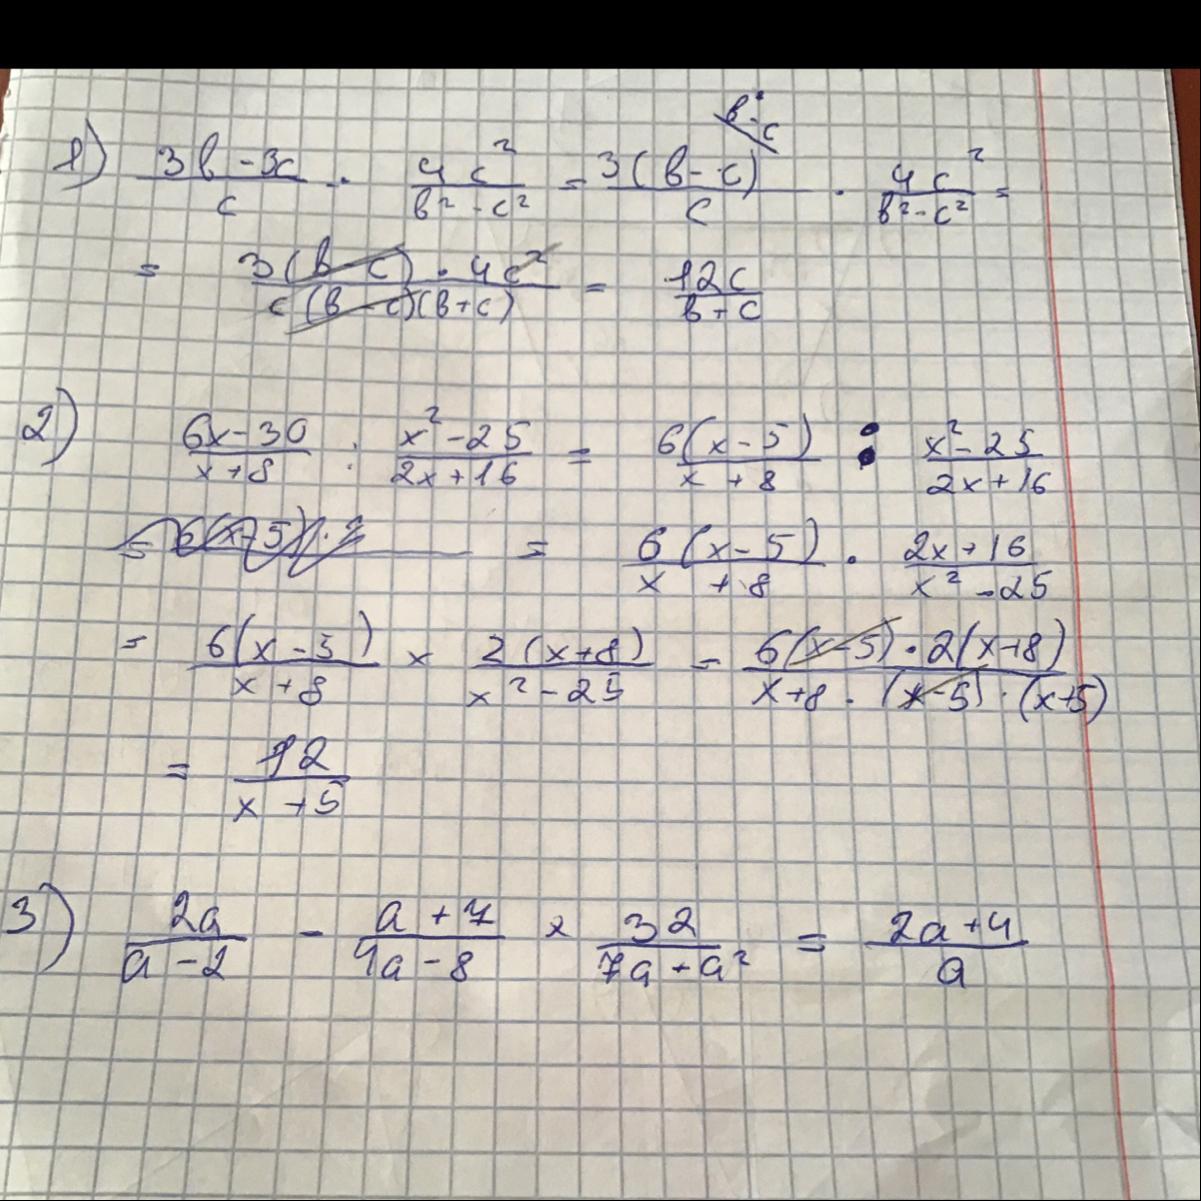 в - c
1) 3в - 3c / c · 4c² / в² - c² = 3(в - c) / c · 4c² / в² - c² =
= 3(в - c) · 4c² / c(в - c)(в + c) = 12c / в + c
2) 6x - 30 / x + 8 : x² - 25 / 2x + 16 = 6(x - 5) / x + 8 : x² - 25 / 2x + 16
= 6(x - 5) · 2 = 6(x - 5) / x + 8 · 2x + 16 / x² - 25
= 6(x - 5) / x + 8 × 2(x + 8) / x² - 25 = 6(x - 5) · 2(x + 8) / x + 8 · (x - 5) · (x + 5)
= 12 / x + 5
3) 2a / a - 2 - a + 7 / 4a - 8 × 32 / 7a + a² = 2a + 4 / a